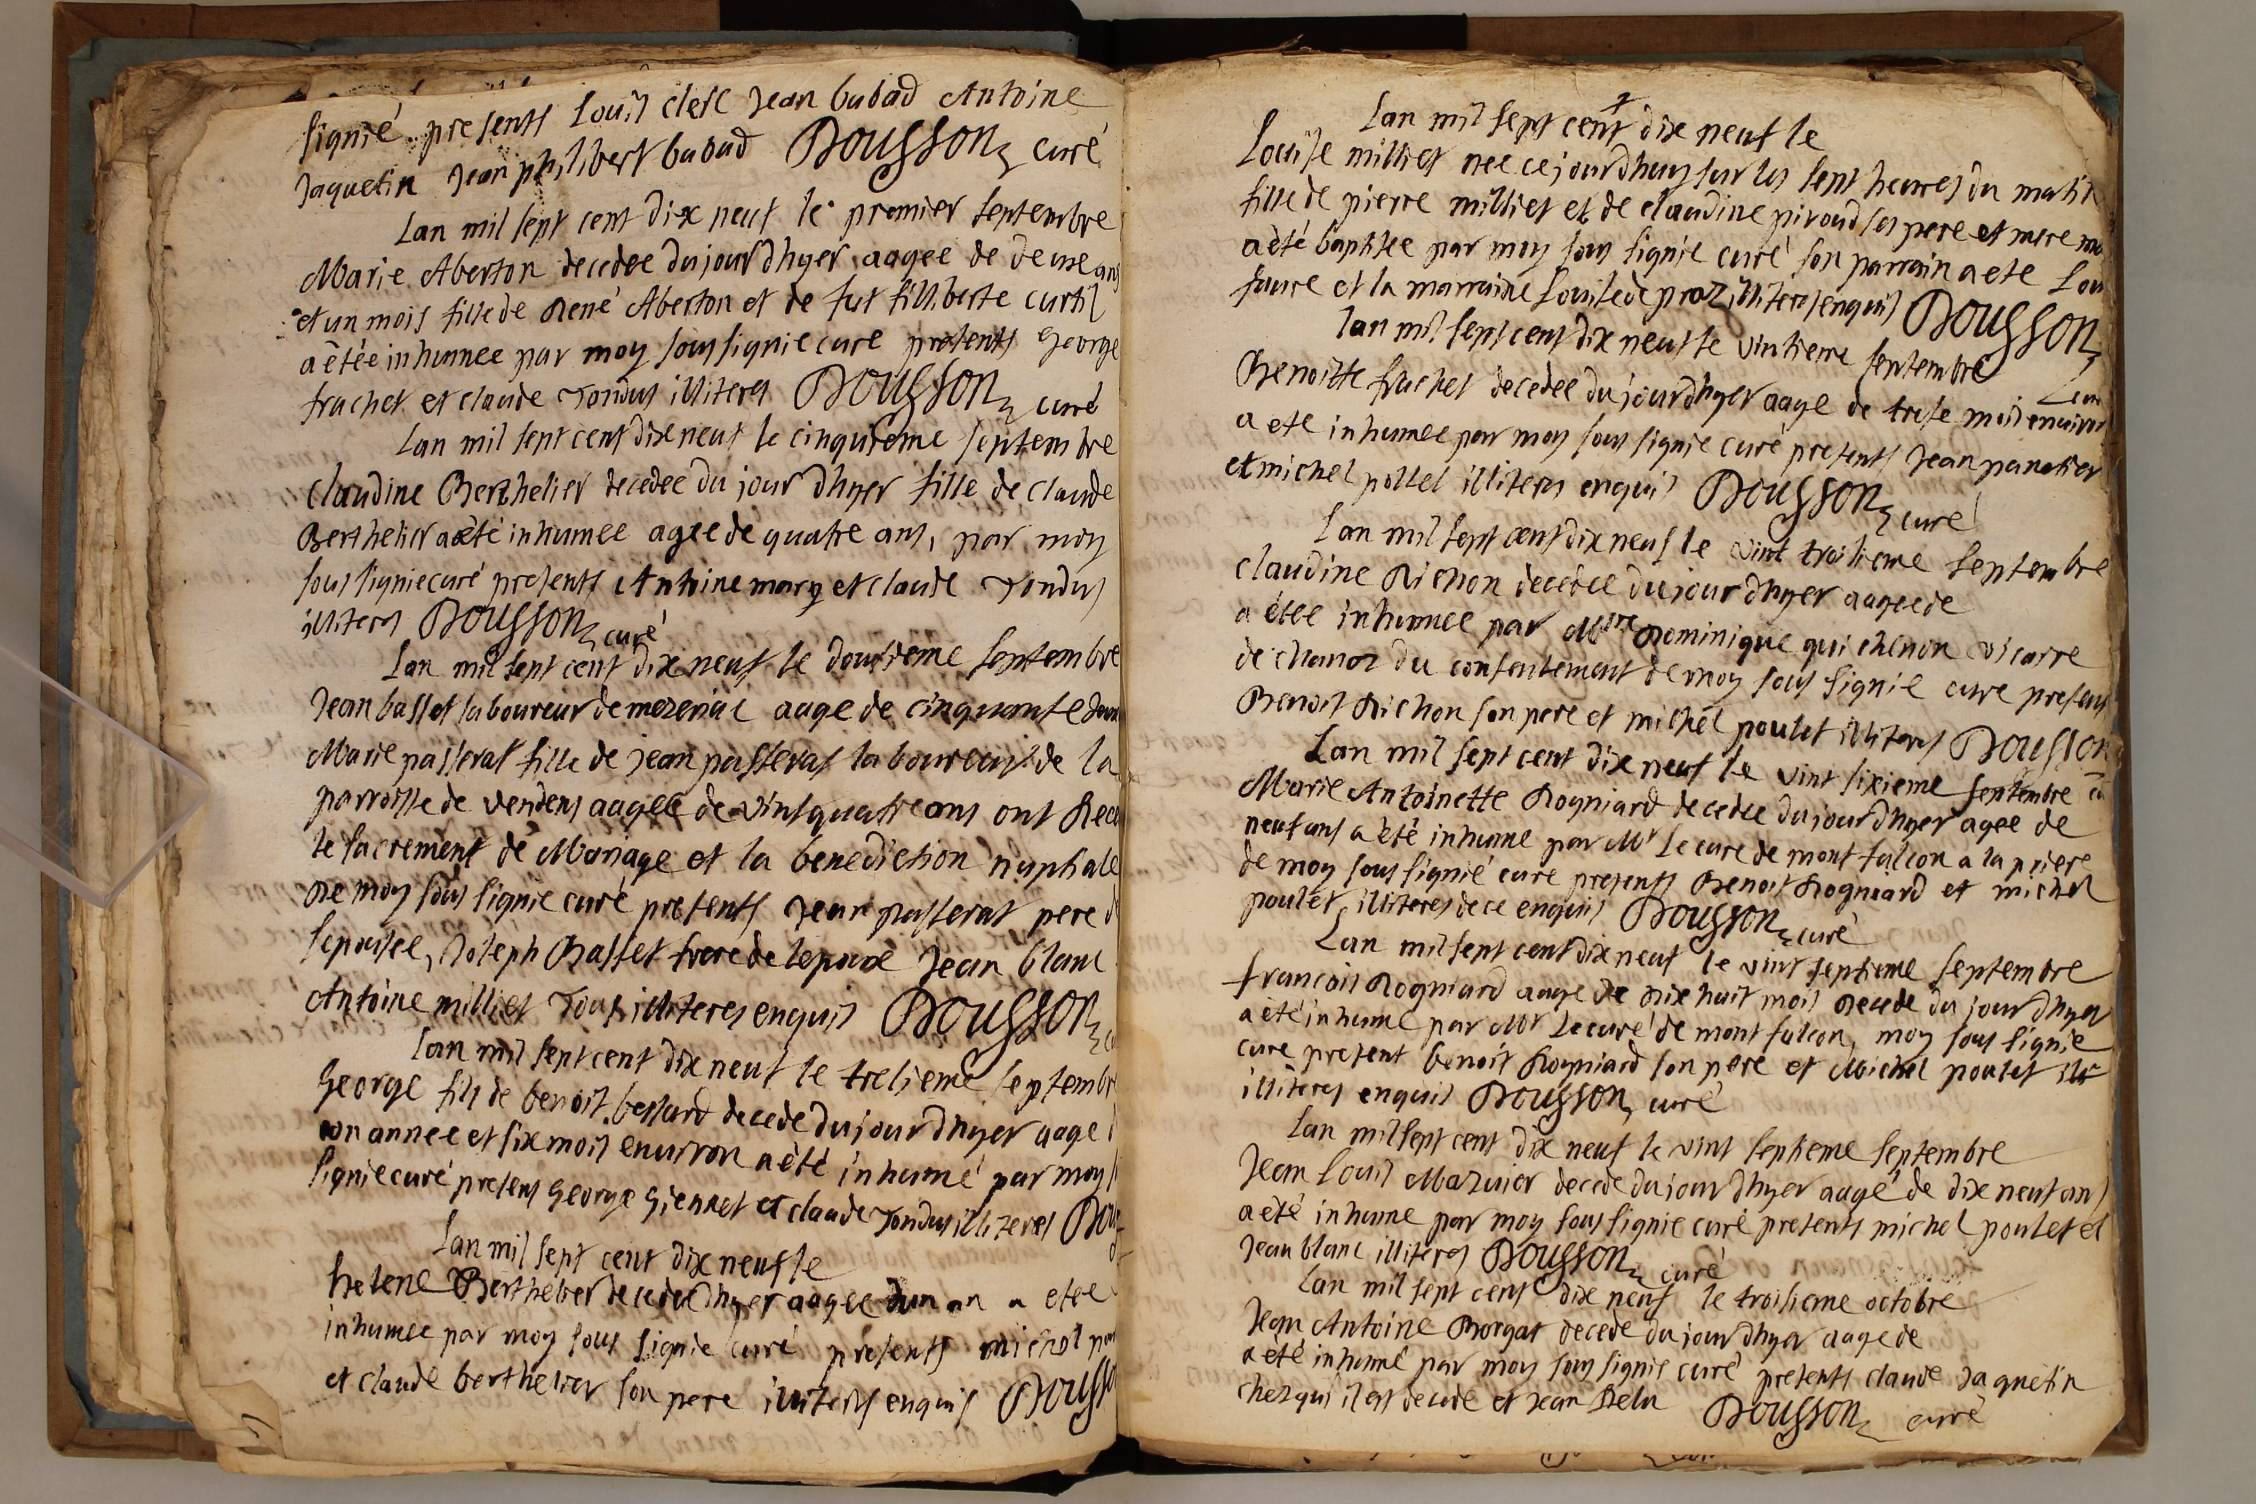 signié presents Louis clerc Jean bubad Antoine
Jaquetin Jean philibert bubad Dousson curé
Lan mil sept cent dix neuf le premier septembre
Marie Aberton decedee dujour dhyer aagee de deux ans
et un mois fille de René Aberton et de fut filliberte curtil
a étée inhumee par moy sous signie cure presents George
frachet et claude Tondus illiteres Dousson curé
Lan mil sept cent dix neuf le cinquieme septembre
claudine Berthelier decedee du jour dhyer fille de claude
Berthelier a eté inhumee agee de quatre ans, par moy
sous signie curé presents Antoine mary et claude Tondus
illiteres Dousson curé
Lan mil sept cent dix neuf le dousieme septembre
Jean basset laboureur de mezeriac aage de cinquante
Marie passerat fille de jean passerat laboureur de la
parroisse de vendens aagee de vint quatre ans ont Receu
le sacrement de Mariage et la benediction nuptiale
De moy sous signie curé presents Jean passerat pere de
lepousee, Joseph Basset frere de lepoux Jean blanc
Antoine milliet Tous illiteres enquis Dousson
Lan mil sept cent dix neuf le tresieme septembre
George fils de benoit bessard decede dujour dhyer aage d
un annee et six mois environ a été inhumé par moy
signie curé presens George Giennet et claude Tondus illiteres Dous
Lan mil sept cent dix neuf le
helene Berthelier decedee dhyer aagee dun an a etee
inhumee par moy sous signie curé presents michel
et claude berthelier son pere illiteres enquis Dousso
Lan mil sept cent dix neuf le
Louise milliet nee ce jourdhuy sur les sept heures du matin
fille de pierre milliet et de claudine piroud ses pere et mere
a été baptisee par moy sous signie curé son parrain a ete Lou
faure et la marraine Louise de proz illiteres enquis Dousson
Lan mil sept cent dix neuf le vintieme septembre
Benoitte frachet decedee du jour dhyer aage de trese mois environ
a ete inhumee par moy sous signie curé presents Jean panetier
et michel pollet illiteres enquis Dousson curé
Lan mil sept cent dix neuf le vint troisieme septembre
claudine Richon decedee dujour dhyer aagee de
a étee inhumee par Mre Dominique quichenon vicaire
de chanoz du consentement de moy sous signie cure presens
Benoit Richon son pere et michel poulet illiteres Dousson
Lan mil sept cent dix neuf le vint sixieme septembre
Marie Antoinette Rogniard decedee dujour dhyer agee de
neuf ans a été inhume par Mr Le cure de mont falcon a la priere
de moy sous signié cure presents Benoit Rogniard et michel
poulet illiteres de ce enquis Dousson curé
Lan mil sept cent dix neuf le vint septieme septembre
francois Rogniard aage de dix huit mois decede du jour dhyer
a été inhume par Mr Le curé de mont falcon, moy sous signie
cure present benoit Rogniard son pere et Michel poulet ills
illiteres enquis Dousson curé
Lan mil sept cent dix neuf le vint septieme septembre
Jean Louis Mazuier decede dujour dhyer aagé de dix neuf ans
a été inhume par moy sous signie curé presents michel poulet et
Jean blanc illiteres Dousson curé
Lan mil sept cent dix neuf le troisieme octobre
Jean Antoine Borgat decede du jour dhyer aage de
a été inhumé par moy sous signie curé presents claude Jaquetin
chez qui il est decede et Jean Delu Dousson curé